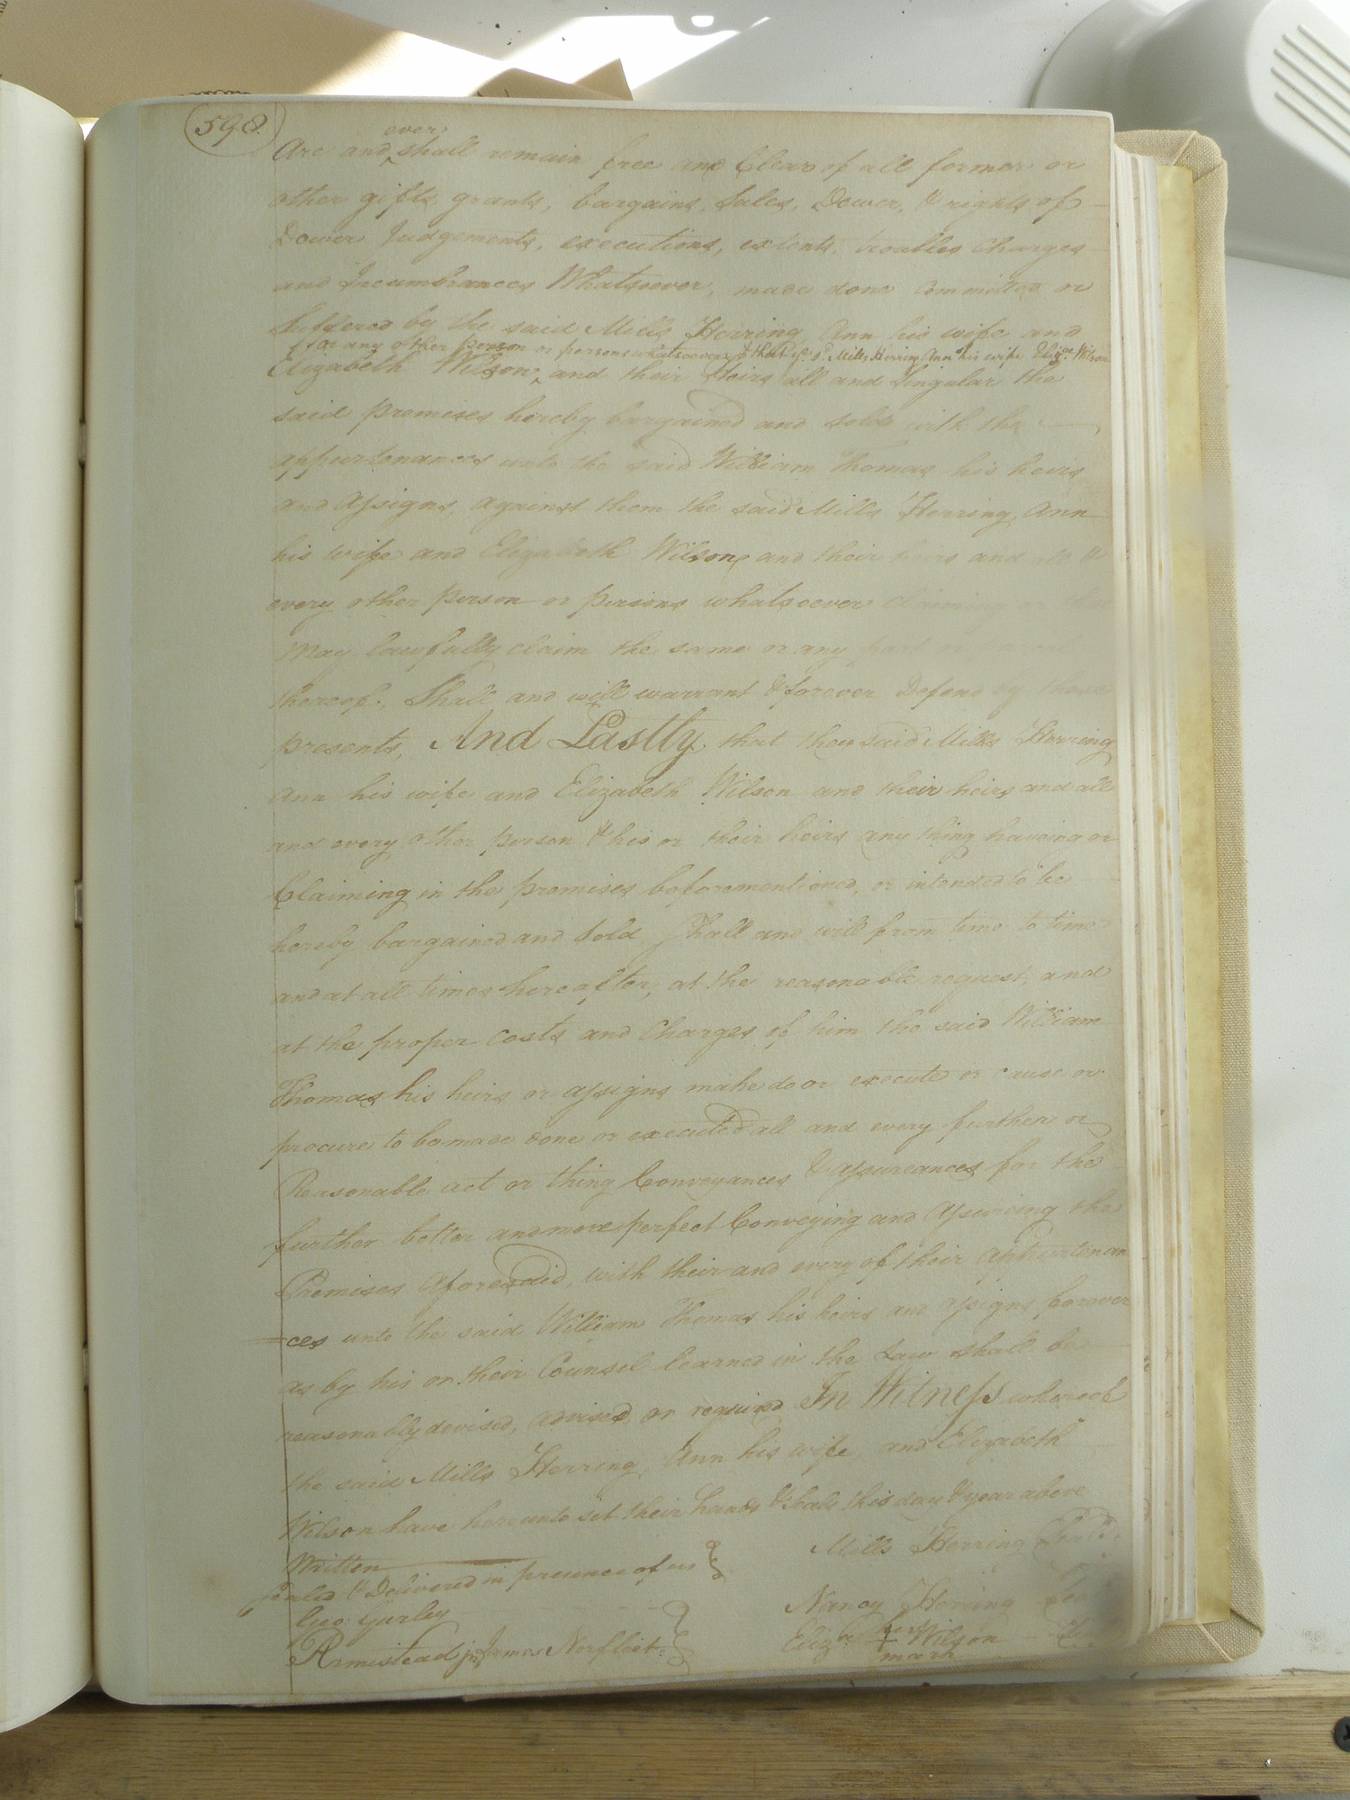 598.
Are and ever shall remain free and Clear of all former or
other gifts, grants, bargains, Sales, Dower, & rights of
Dower Judgements, executions, extents, troubles Charges
and Incumbrances Whatsoever, made done Committed or
Suffered by the said Mills Herring Ann his wife and
or any other person or persons whatsoever & that Mills Herring Ann his wife Wilson
Elizabeth Wilson, and their Heirs all and Singular the
said premises hereby bargained and sold with the
appurtenances unto the said William Thomas his heirs
and assigns, against them the said Mills Herring, Ann
his wife and Elizabeth Wilson, and their heirs and all &
every other person or persons whatsoever claiming or
May lawfully claim the same or any part or
thereof. Shall and will warrant & forever Defend by these
presents, And Lastly, that they said Mills Herring
Ann his wife and Elizabeth Wilson and their heirs and all
and every other person & his or their heirs any thing having or
Claiming in the premises beforementioned, or intended to be
hereby bargained and Sold Shall and will from time to time
and at all times hereafter, at the reasonable request, and
at the proper costs and Charges of him the said William
Thomas his heirs or assigns make do or execute or cause or
procure to be made done or executed all and every further or
Reasonable act or thing Conveyances & assureances for the
further better and more perfect Conveying and Assureing the
Premises aforesaid, with their and every of their appurtenan
=ces unto the said William Thomas his heirs and assigns forever
as by his or their Counsel learned in the Law shall be
reasonably devised, advised, or required In Witness whereof
the said Mills Herring, Ann his wife, and Elizabeth
Wilson have hereunto set their hands & Seals this day & year above
Written
Mills Herring Seal
Sealed & Delivered in presence of us
Nancy Herring Seal
Geo Gurley
her
Elizth + Wilson
mark
Armistead jr James Norfleet.